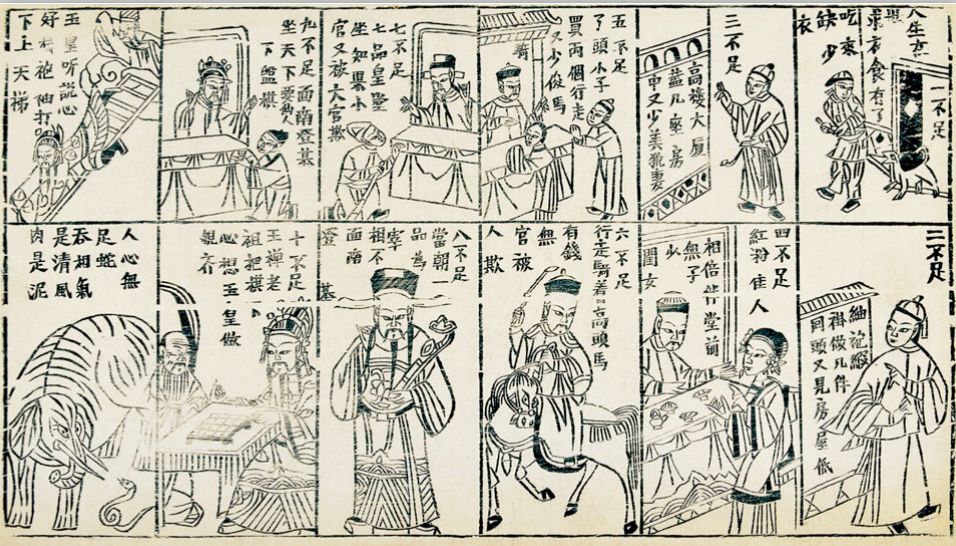 一不足
人生在
求衣食有了
吃來
缺少
衣
二不足
紬袍緞
褂做几件
回頭又見房屋低
三不足
高楼大厦
盖几座房
中又少美貌妻
四不足
紅粉佳人
相倍伴堂前
無子
少
閨女
五不足
了頭小子
買両個行走
又少俊馬
騎
六不足
行走騎着高頭馬
有錢
無
官被
人欺
七不足
七品皇堂
坐知県小
官又被大官欺
八不足
當朝一
品為
宰
相不
面南
登基
九不足面南登基
坐天下要
下盤棋
十不足
王禅老
祖把棋下
心想玉皇做
親
玉皇听説心
好袍袖打
下上天梯
人心無
足蛇
吞相氣
是清風
肉是泥